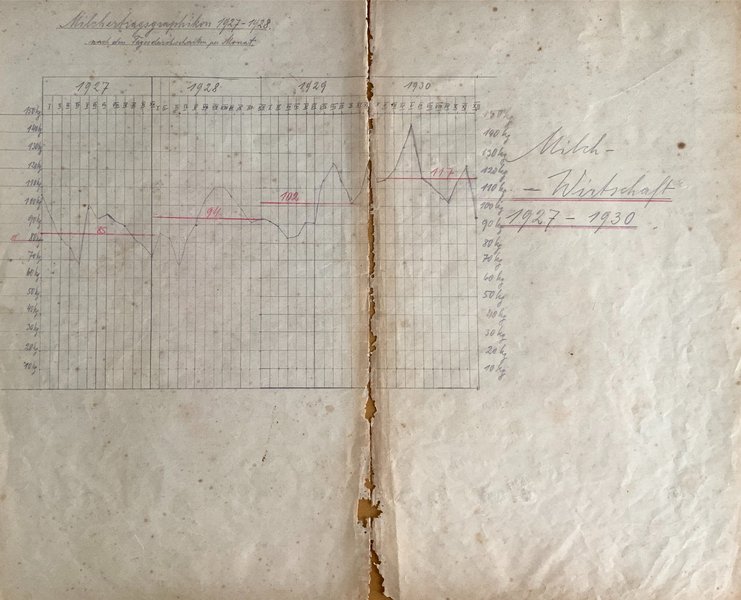 Milchertragsgraphikon 1927-1928.
nach den Tagesdurchschnitten per Monat.
1927 1928 1929 1930
150 kg
140 kg
130 kg
120 kg
110 kg
100 kg
90 kg
80 kg
70 kg
60 kg
50 kg
40 kg
30 kg
20 kg
10 kg
85
94
102
117
150 kg
140 kg
130 kg
120 kg
110 kg
100 kg
90 kg
80 kg
70 kg
60 kg
50 kg
40 kg
30 kg
20 kg
10 kg
Milch-
- Wirtschaft
1927 - 1930